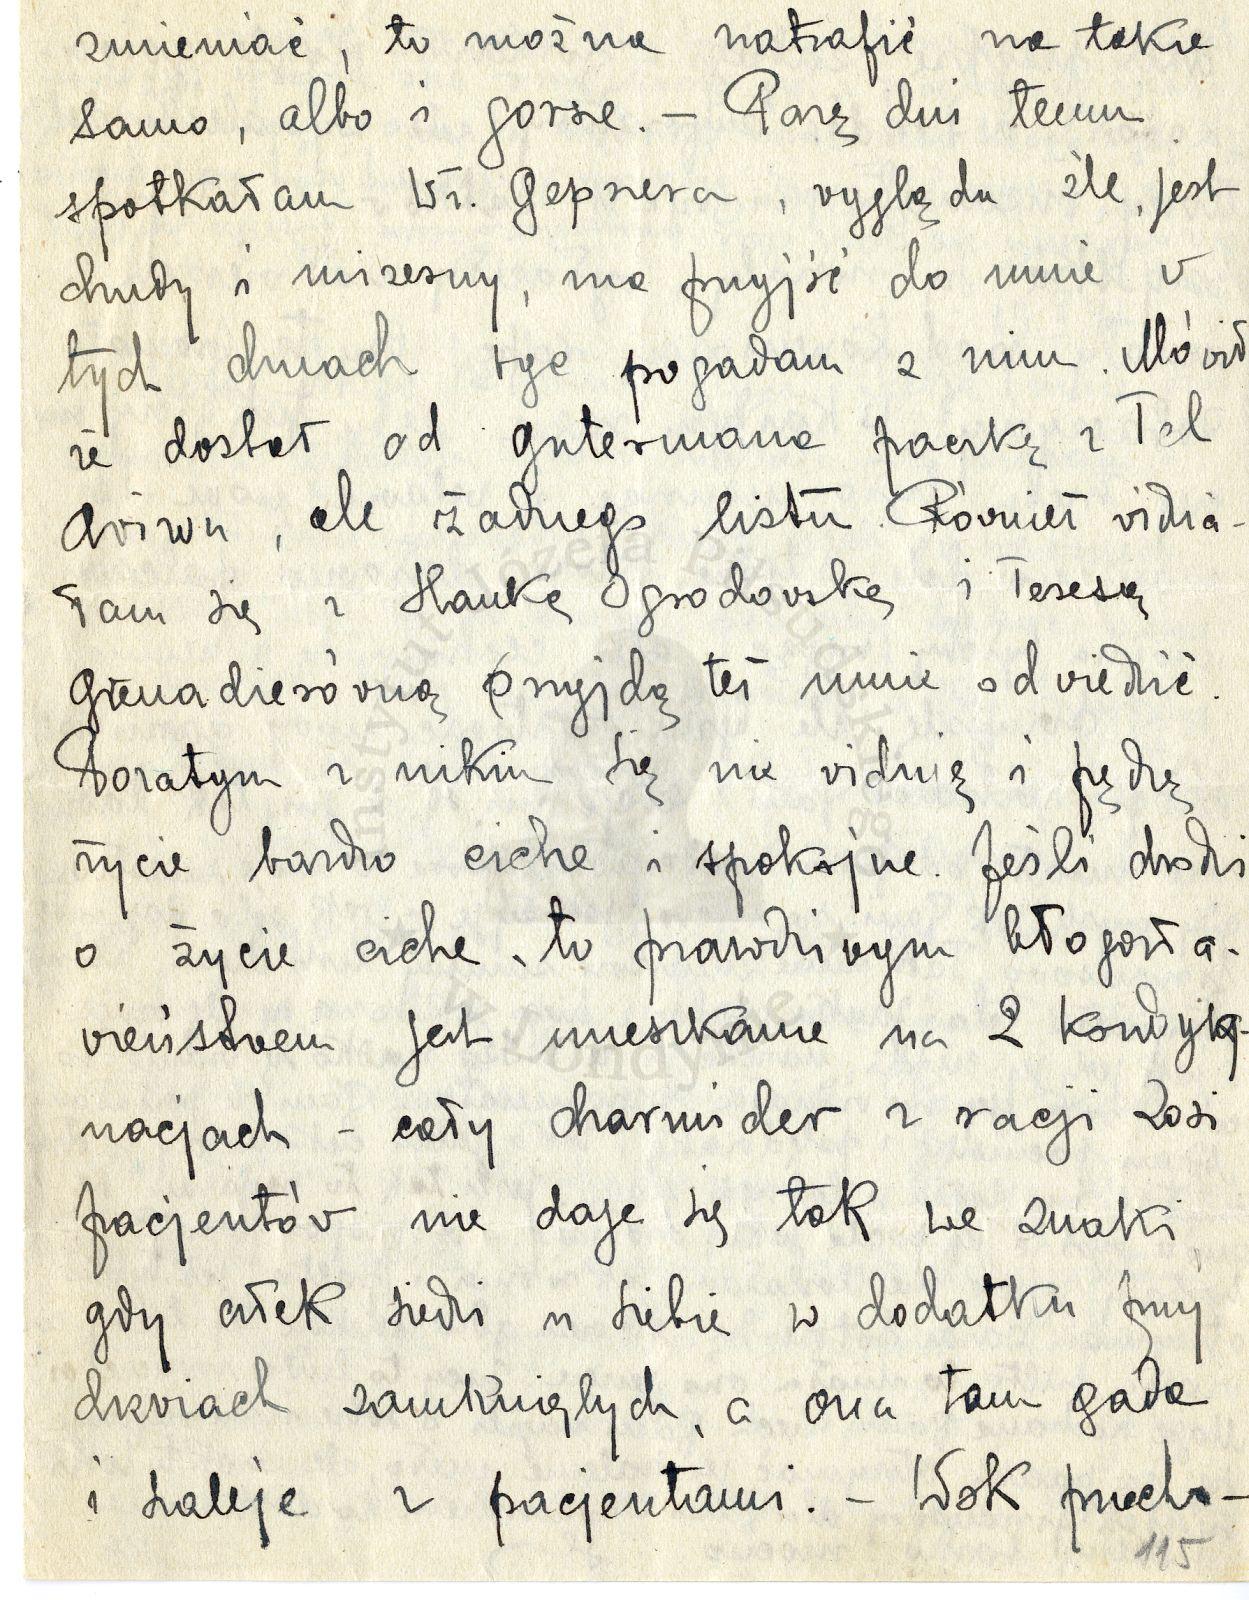 zmieniać, to można natrafić na takie
samo, albo i gorsze. – Parę dni temu
spotkałam Wł. Gepnera, wygląda źle, jest
chudy i mizerny, ma przyjść do mnie w
tych dniach
pogadam z nim. Mówił
że dostał od Gutermana paczkę z Tel
Avivu, ale żadnego listu. Również widzia-
łam się z Hanką Ogrodowską i Teresą
Grenadierówną przyjdą też mnie odwiedzić.
Poza tym z nikim się nie widuję i pędzę
życie bardzo ciche i spokojne. Jeśli chodzi
o życie ciche, to prawdziwym błogosła-
wieństwem jest mieszkanie na 2 kondyg-
nacjach – cały charmider z racji Zosi
pacjentów nie daje się tak we znaki,
gdy człek siedzi u siebie w dodatku przy
drzwiach zamkniętych, a ona tam gada
i szaleje z pacjentami. – Wok przecho-
115
Instytut Józefa Piłsudskiego
w Londynie